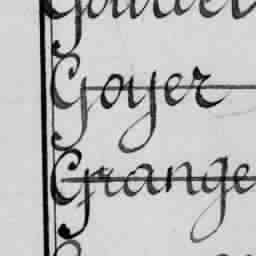 Goyer
Grange